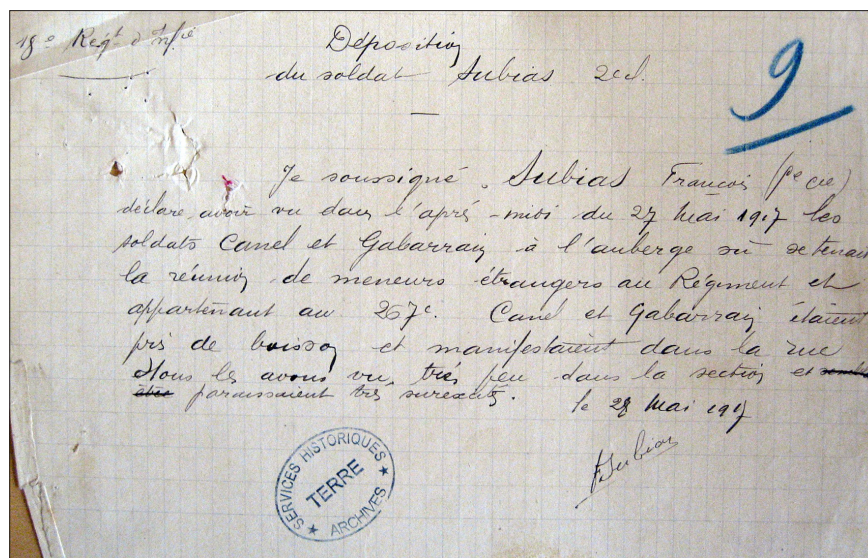 18e Régt d'Infie
Déposition
du soldat Subias 2e cl.
9
Je soussigné, Subias François (1ère cie)
déclare avoir vu dans l'après-midi du 27 Mai 1917 les
soldats Canel et Gabarrain à l'auberge où se tenait
la réunion de meneurs étrangers au Régiment et
appartenant au 267e. Canel et Gabarrain étaient
pris de boisson et manifestaient dans la rue
Nous les avons vu très peu dans la section et
paraissaient très surexcités. le 28 Mai 1917
F. Subias
SERVICES HISTORIQUES
TERRE
ARCHIVES